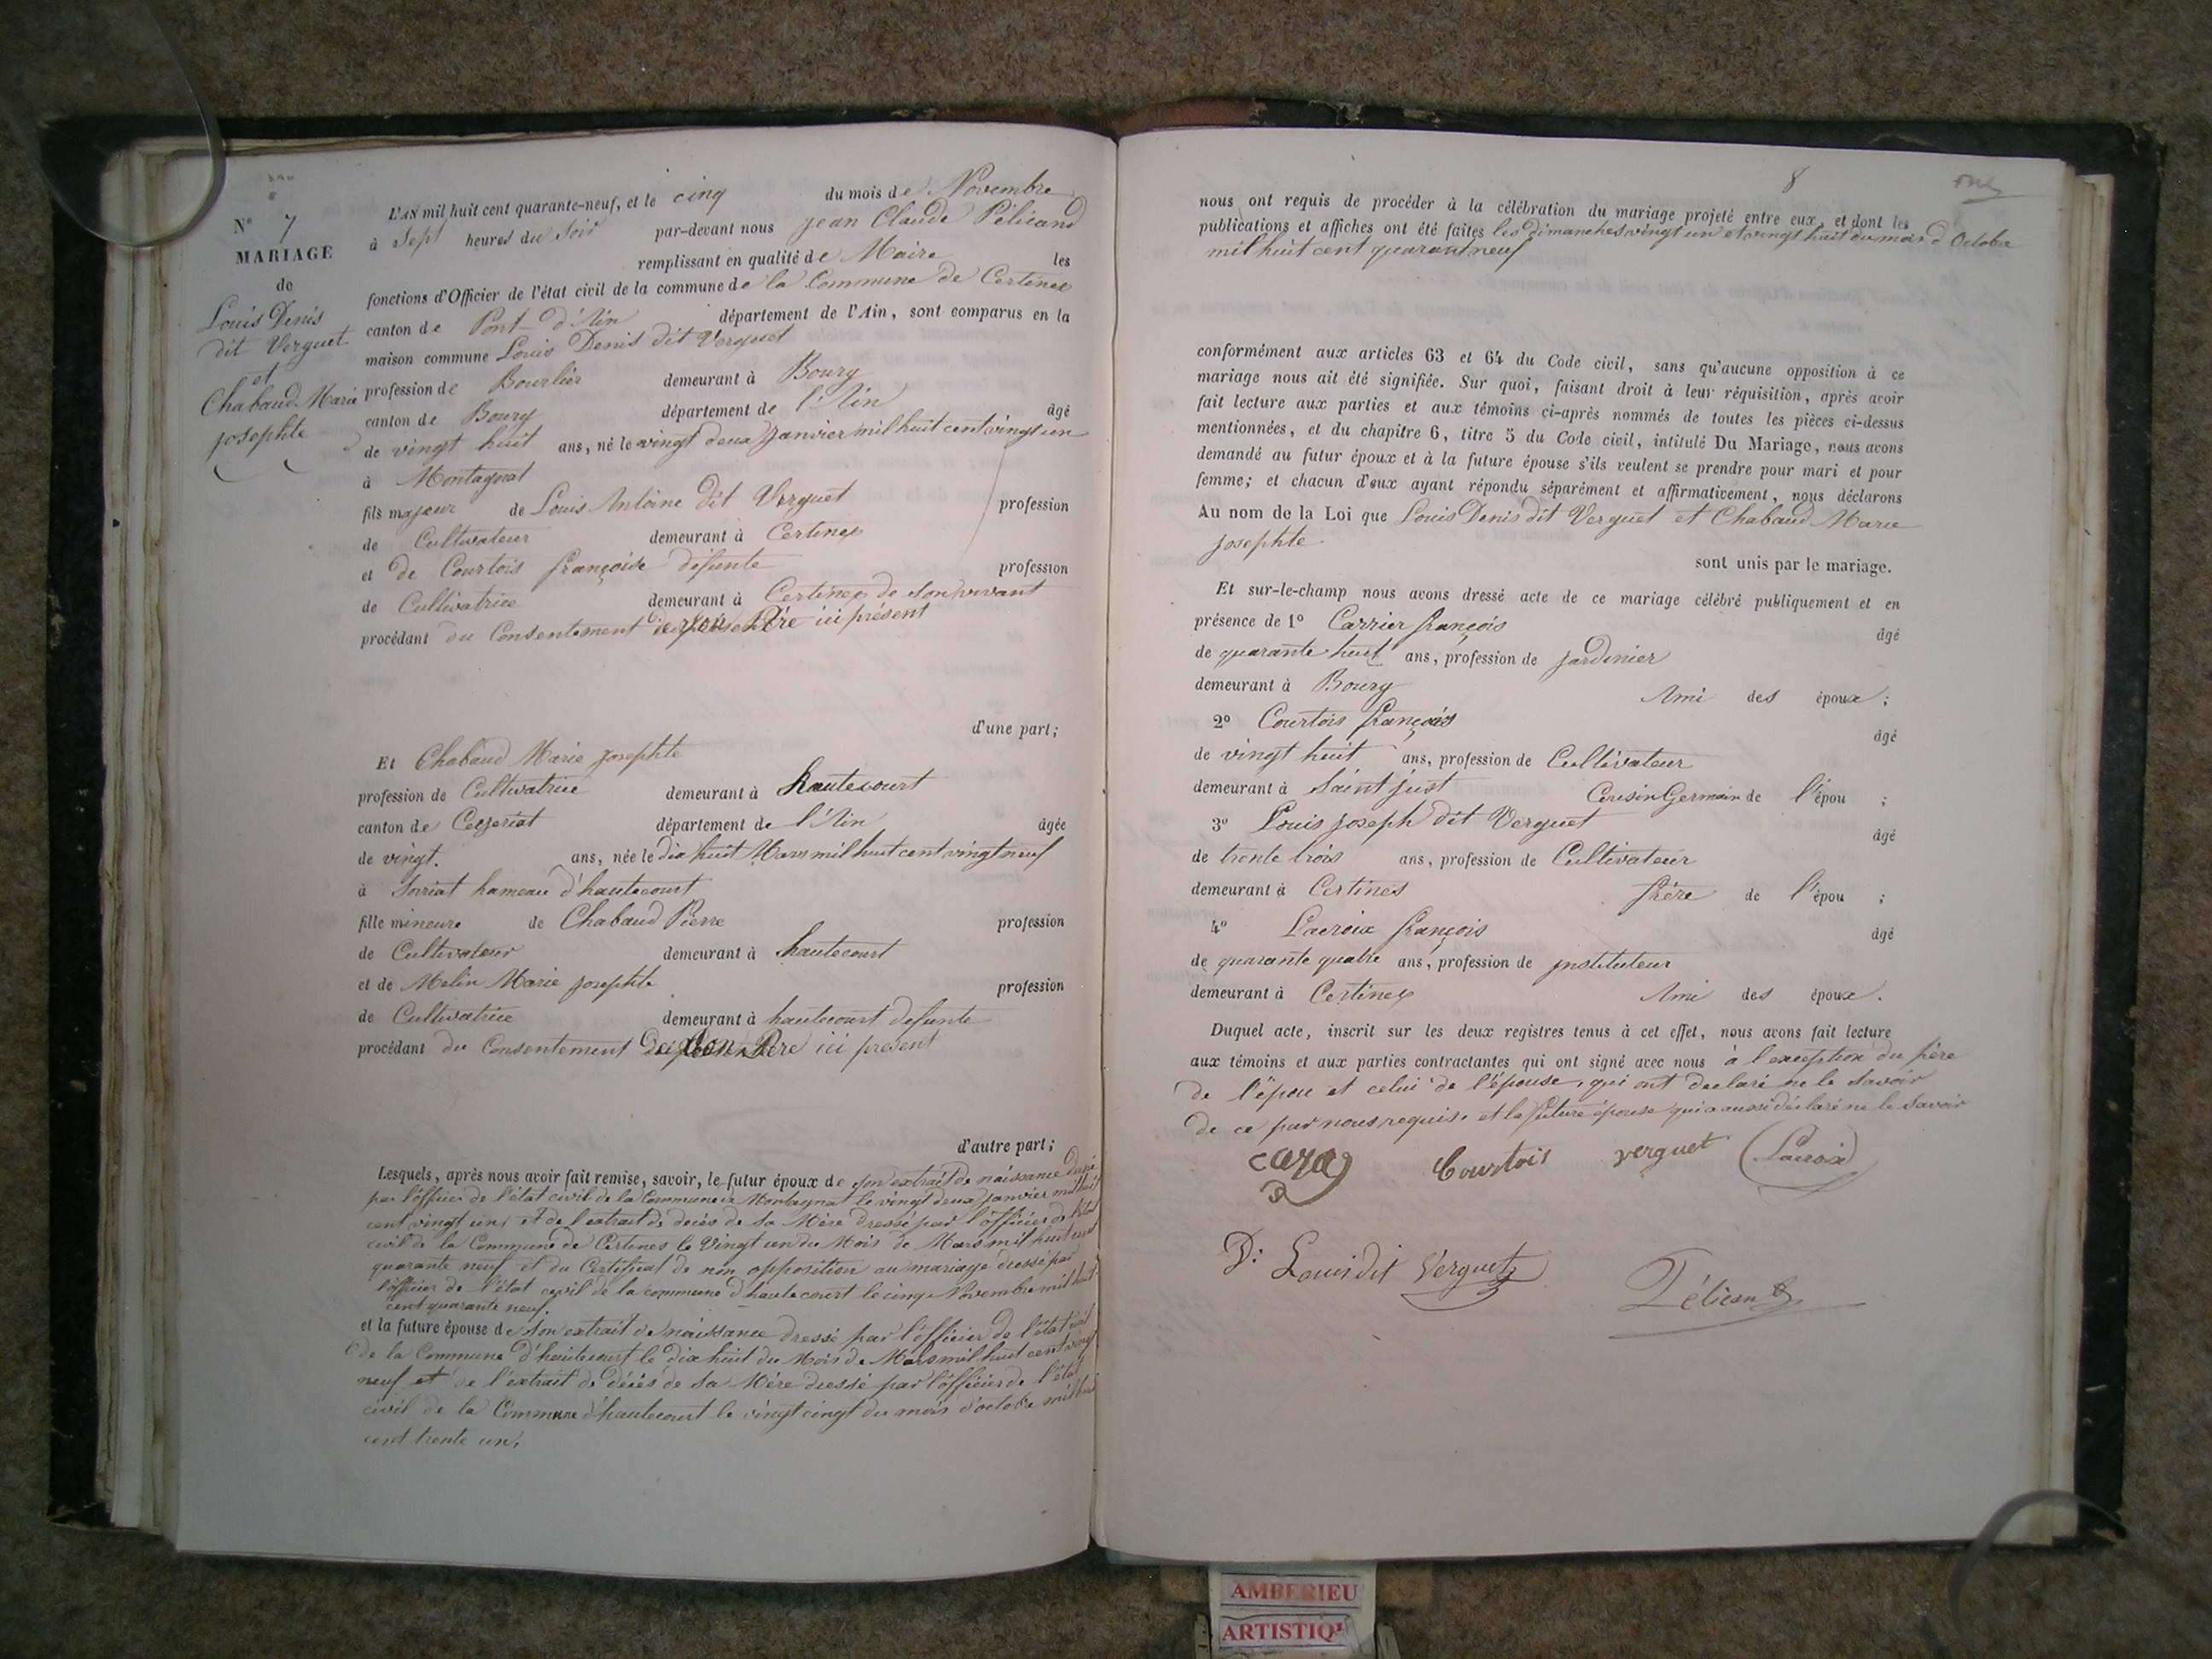 N° 7
MARIAGE
de
Louis Denis
dit Verguet
et
Chabaud Marie
josephte
L'AN mil huit cent quarante-neuf, et le cinq du mois de Novembre
à Sept heures du Soir par-devant nous jean Claude Pélicand
remplissant en qualité de Maire les
fonctions d'Officier de l'état civil de la commune de la Commune de Certines
canton de Pont-d'Ain département de l'Ain, sont comparus en la
maison commune Louis Denis dit Verguet
profession de Bourlier demeurant à Bourg
canton de Bourg département de l'Ain âgé
de vingt huit ans, né le vingt deux janvier mil huit cent vingt un
à Montagnat
fils majeur de Louis Antoine dit Verguet profession
de Cultivateur demeurant à Certines
et de Courtois françoise défunte profession
de Cultivatrice demeurant à Certines de son vivant
procédant du Consentement de son Père ici présent
d'une part;
Et Chabaud Marie josephte
profession de Cultivatrice demeurant à hautecourt
canton de Ceyzeriat département de l'Ain âgée
de vingt. ans, née le dix huit Mars mil huit cent vingt neuf
à Soriat hameau d'hautecourt
fille mineure de Chabaud Pierre profession
de Cultivateur demeurant à hautecourt
et de Melin Marie josephte profession
de Cultivatrice demeurant à hautecourt defunte
procédant du Consentement de son Père ici présent
d'autre part;
Lesquels, après nous avoir fait remise, savoir, le futur époux de son extrait de naissance dressé
par l'officier de l'état civil de la Commune de Montagnat le vingt deux janvier mil huit
cent vingt un, et de l'extrait de décès de sa Mère dressé par l'officier de l'état
civil de la Commune de Certines le Vingt un du Mois de Mars mil huit cent
quarante neuf et du Certificat de non opposition au mariage dressé par
l'officier de l'état civil de la commune d'hautecourt le cinq Novembre mil huit
cent quarante neuf.
et la future épouse de son extrait de naissance dressé par l'officier de l'état civil
de la Commune d'hautecourt le dix huit du Mois de Mars mil huit cent vingt
neuf et de l'extrait de décès de sa Mère dressé par l'officier de l'état
civil de la Commune d'hautecourt le vingt cinq du mois d'octobre mil huit
cent trente un,
8
nous ont requis de procéder à la célébration du mariage projeté entre eux, et dont les
publications et affiches ont été faites les dimanches vingt un et vingt huit du mois d'Octobre
mil huit cent quarant neuf
conformément aux articles 63 et 64 du Code civil, sans qu'aucune opposition à ce
mariage nous ait été signifiée. Sur quoi, faisant droit à leur réquisition, après avoir
fait lecture aux parties et aux témoins ci-après nommés de toutes les pièces ci-dessus
mentionnées, et du chapitre 6, titre 5 du Code civil, intitulé Du Mariage, nous avons
demandé au futur époux et à la future épouse s'ils veulent se prendre pour mari et pour
femme; et chacun d'eux ayant répondu séparément et affirmativement, nous déclarons
Au nom de la Loi que Louis Denis dit Verguet et Chabaud Marie
josephte
sont unis par le mariage.
Et sur-le-champ nous avons dressé acte de ce mariage célébré publiquement et en
présence de 1° Carrier françois âgé
de quarante huit ans, profession de jardinier
demeurant à Bourg Ami des époux;
2° Courtois françois âgé
de vingt huit ans, profession de Cultivateur
demeurant à Saint just Cousin Germain de l'épou;
3° Louis joseph dit Verguet âgé
de trente trois ans, profession de Cultivateur
demeurant à Certines frère de l'épou;
4° Lacroix françois âgé
de quarante quatre ans, profession de jnstituteur
demeurant à Certines Ami des époux.
Duquel acte, inscrit sur les deux registres tenus à cet effet, nous avons fait lecture
aux témoins et aux parties contractantes qui ont signé avec nous à l'exception du père
de l'épou et celui de l'épouse, qui ont declaré ne le savoir
de ce par nous requis. et la future épouse qui a aussi déclaré ne le Savoir
Courtois verguet Lacroix
D: Louis dit Verguet
Pélicand
AMBERIEU
ARTISTIQ